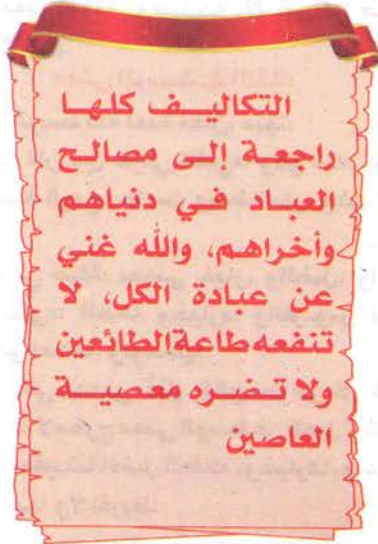 التكاليف كلها
راجعة إلى مصالح
العباد في دنياهم
وأخراهم، والله غني
عن عبادة الكل، لا
تنفعه طاعة الطائعين
ولا تضره معصية
العاصين